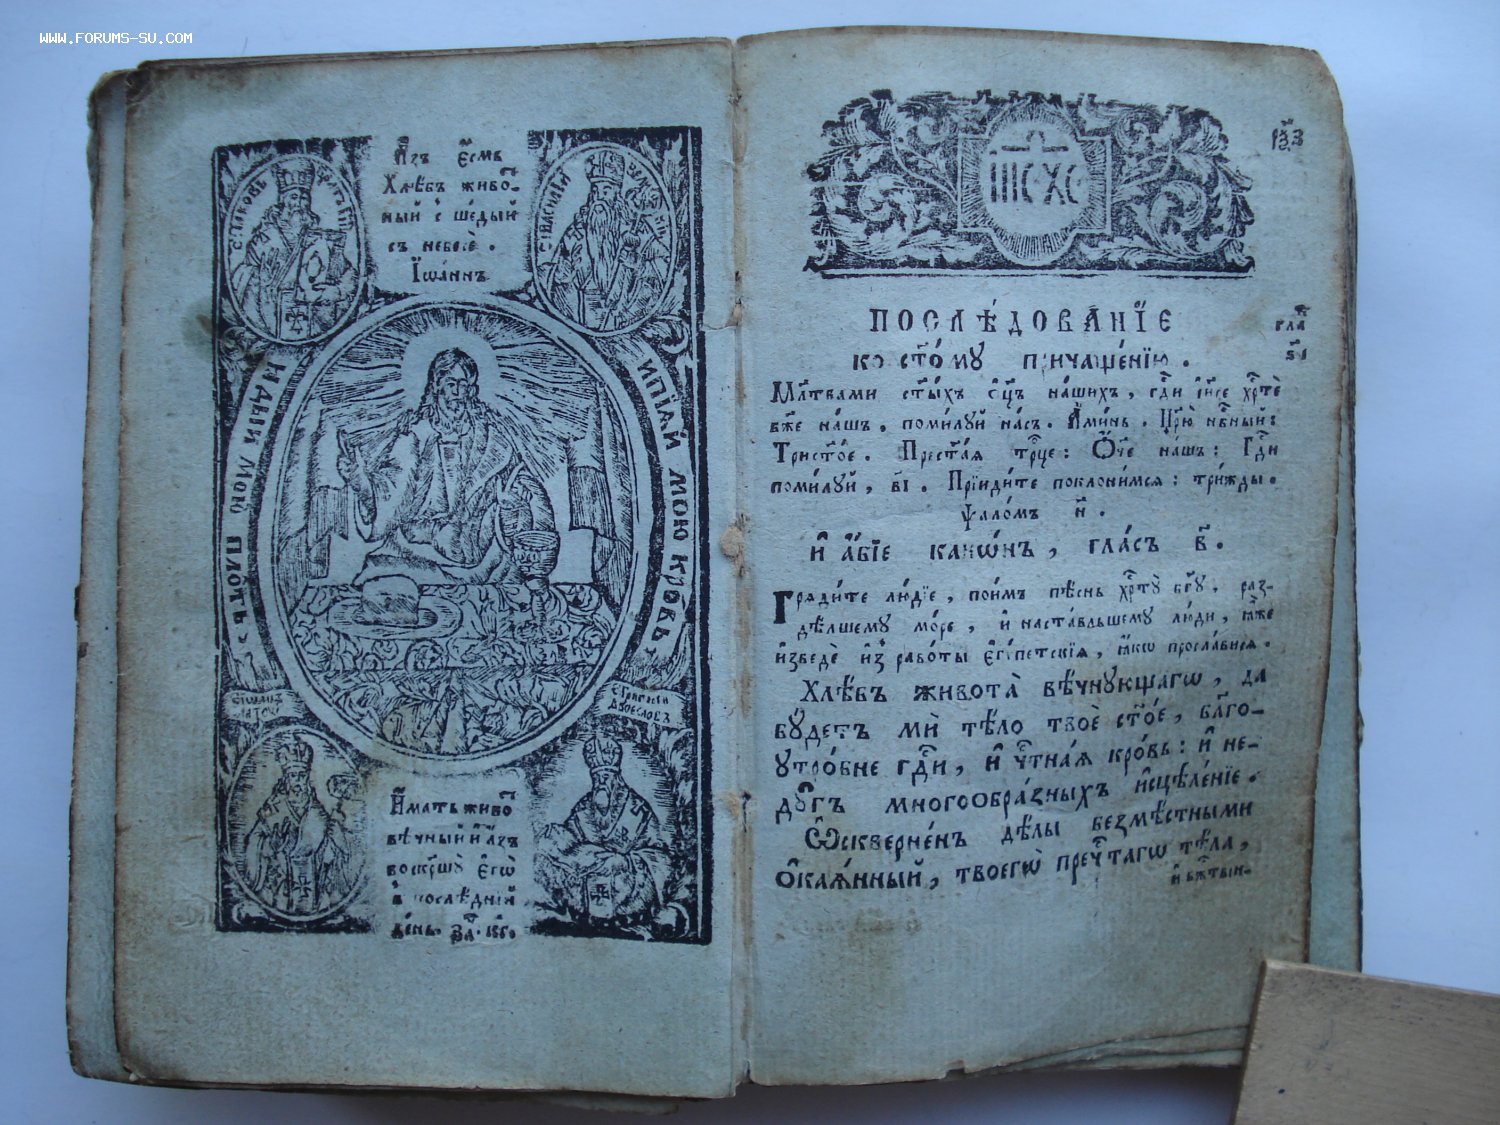 WWW.FORUMS-SU.COM
А҆́зъ є҆́смь
Хлѣ́бъ живо́-
ный с̾шéдый
съ небесѐ.
І҆ѡа́ннъ
ꙗ҆ды́й мою̀ пло́ть
и҆ пїѧ́й мою̀ кро́вь
И҆́мать живо́
вѣ́чный и҆ а҆́зъ
воскр҃шꙋ̀ є҆го̀
в̾ послѣ́днїй
де́нь.
ПОСЛѢ́ДОВАНЇЕ
ко ст҃о́мꙋ причаще́нїю.
гла҃
Мл҃твами ст҃ы́хъ ѻ҆ц҃ъ на́шихъ, гдⷭ҇и і҆и҃се хрⷭ҇тѐ
бж҃е на́шъ, поми́лꙋй на́съ. А҆ми́нь. Цр҃ю̀ нбⷭ҇ный:
Трист҃о́е. Прест҃а́ѧ трⷪ҇це: Ѻ҆́ч҃е на́шъ: Гдⷭ҇и
поми́лꙋй, в҃і. Прїиди́те поклони́мсѧ: три́жды.
Ѱало́мъ
И҆ а҆́бїе кано́нъ, гла́съ в҃.
Грѧди́те лю́дїе, пои́мъ пѣ́снь хрⷭ҇тꙋ̀ бг҃ꙋ, раз-
дѣ́лшемꙋ мо́ре, и҆ наста́вльшемꙋ лю́ди, ꙗ҆̀же
и҆зведѐ и҆з̾ рабо́ты є҆гѵ́петскїѧ, ꙗ҆́кѡ просла́висѧ.
Хлѣ́бъ живота̀ вѣ́чнꙋющагѡ, да
бꙋ́детъ мѝ тѣ́ло твоѐ ст҃о́е, бл҃го-
ꙋтро́бне гдⷭ҇и, и҆ чⷭ҇тна́ѧ кро́вь: и҆ не-
дꙋ́гъ многоѻбра́зныхъ и҆сцѣле́нїе.
Ѡ҆скверне́нъ дѣ́лы безмѣ́стными
ѻ҆каѧ́нный, твоегѡ̀ преч҃тагѡ тѣ́ла,